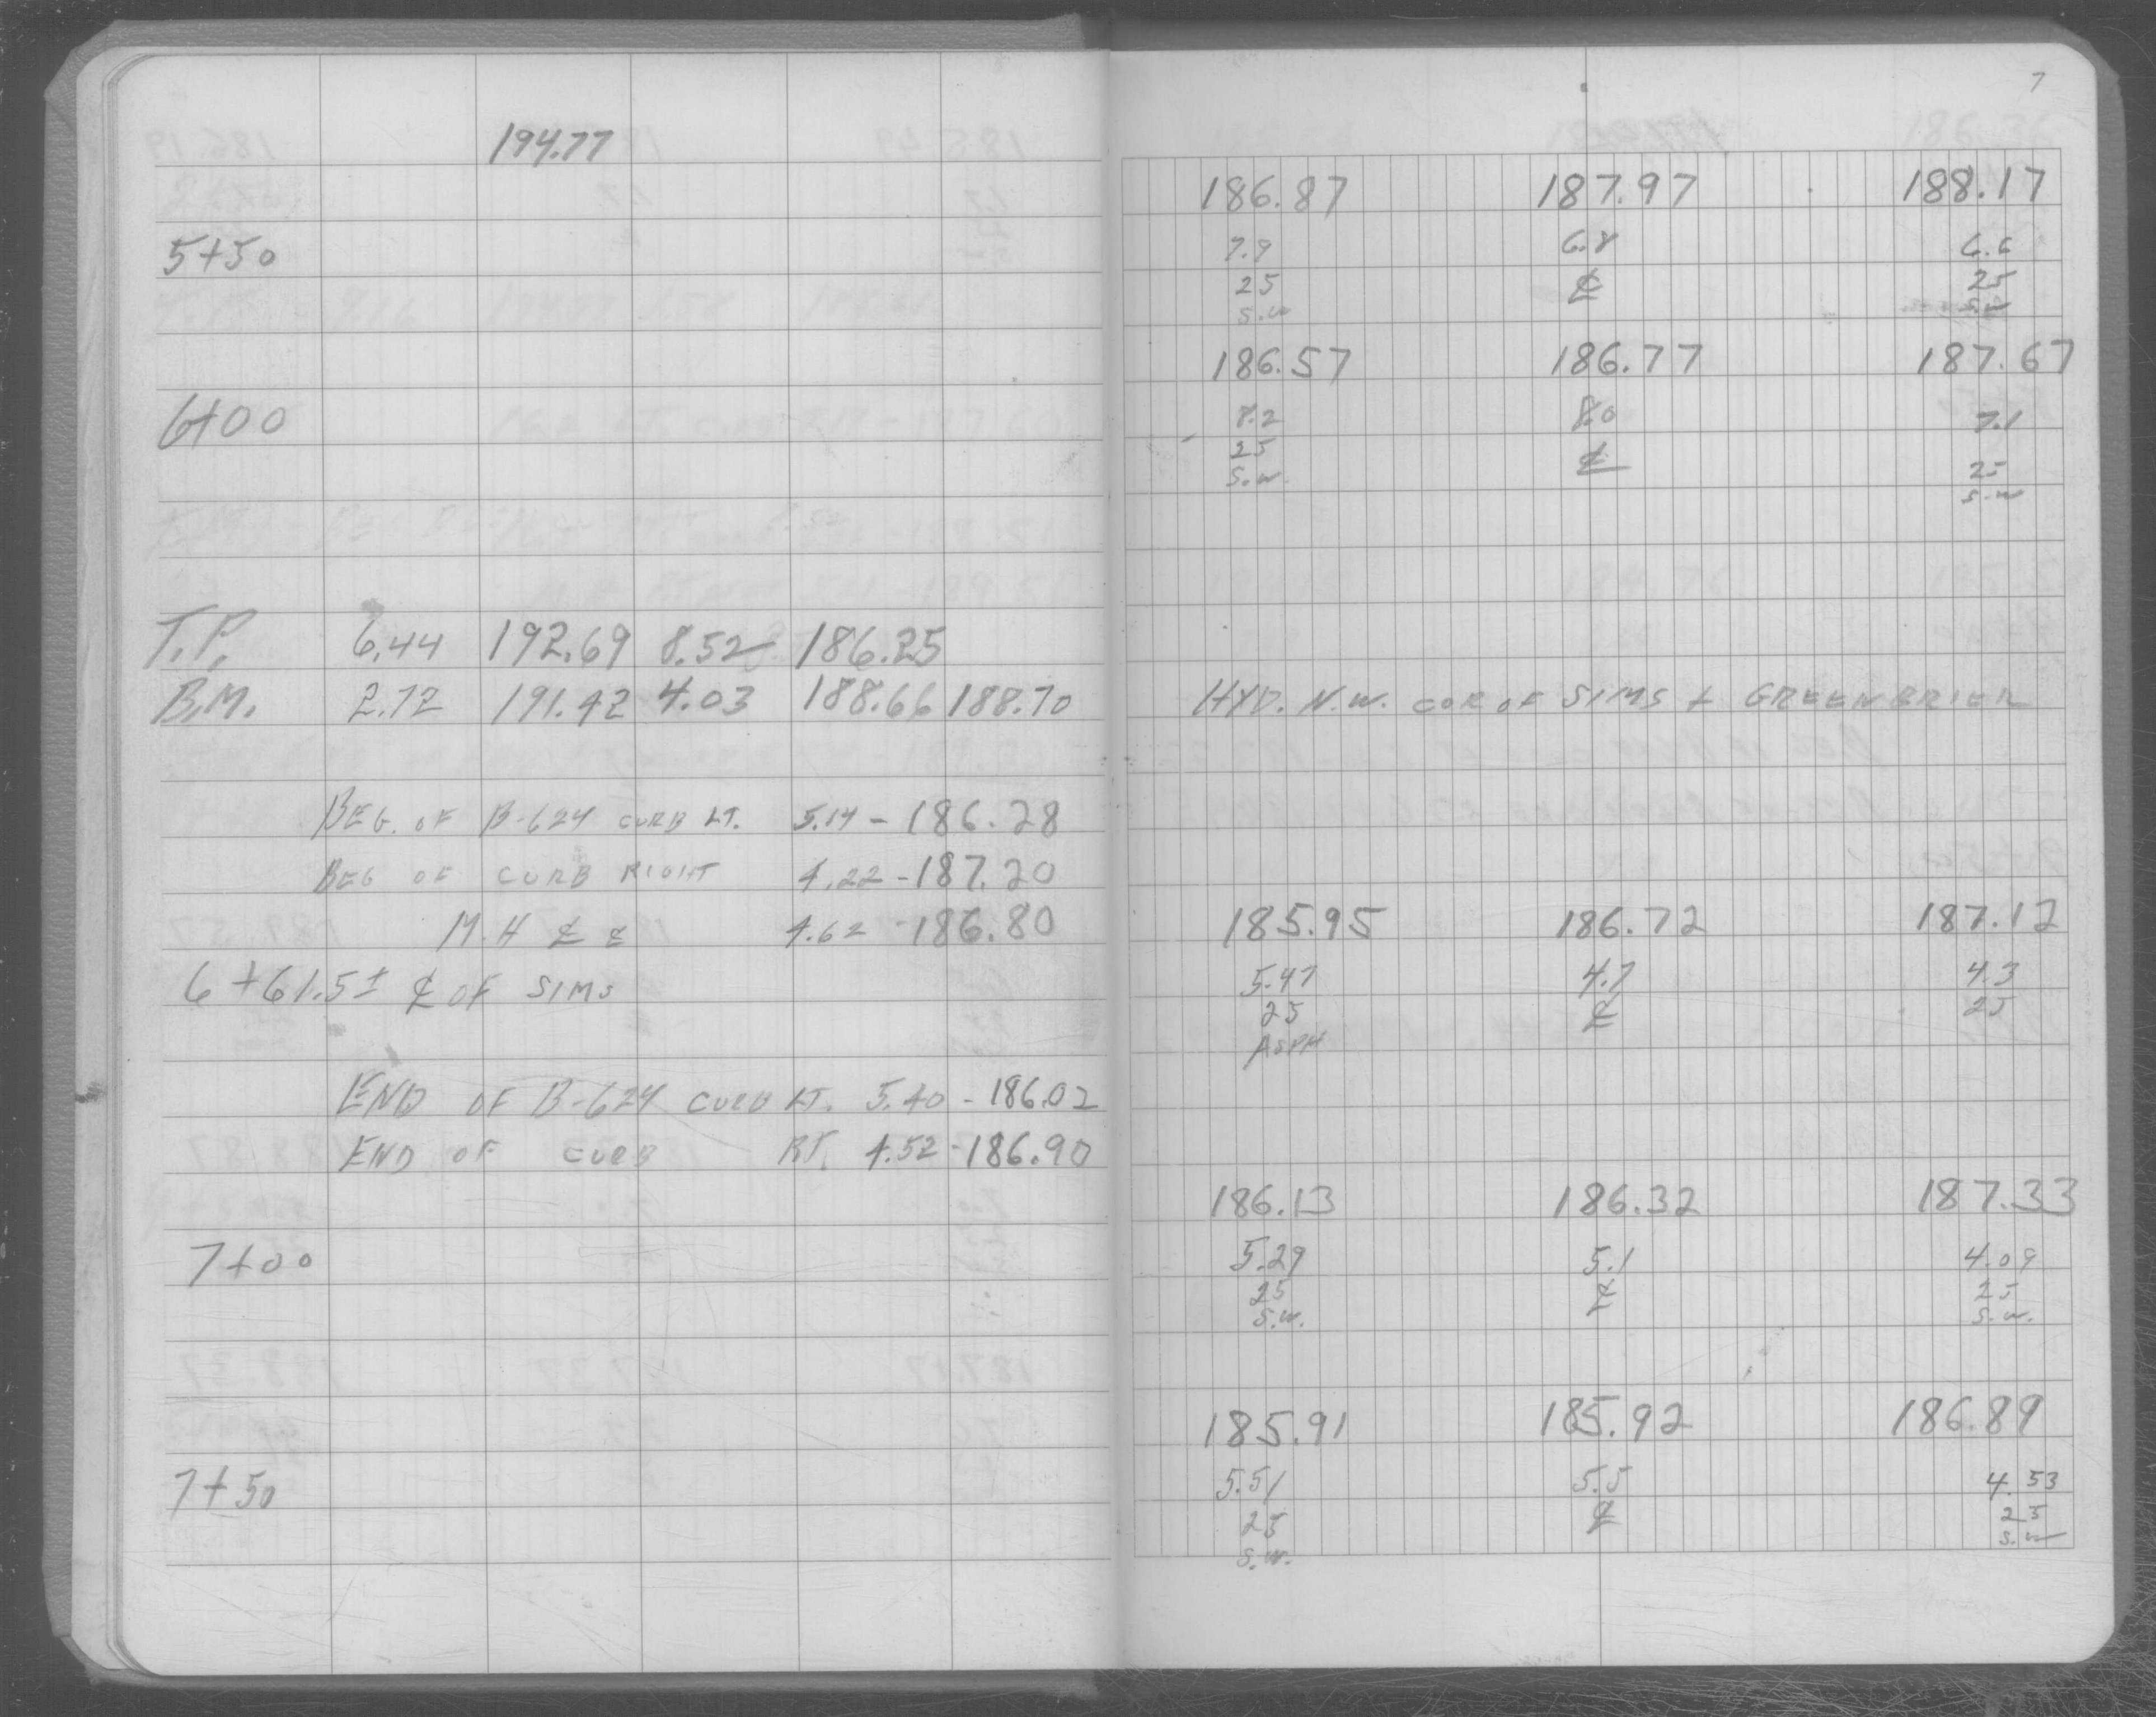 194.77
5+50
6+00
T.P. 6.44 192.69 8.52 186.25
B.M. 2.72 191.42 4.03 188.66 188.70
BEG. OF B-624 CURB LT. 5.14 - 186.28
BEG OF CURB RIGHT 4.22 - 187.20
M.H ℄ 4.62 - 186.80
6+61.5± ℄ OF SIMS
END OF B-624 CURB LT. 5.40 - 186.02
END OF CURB RT. 4.52 - 186.90
7+00
7+50
7
186.87 187.97 188.17
7.9 6.8 6.6
25 ℄ 25
S.W S.W
186.57 186.77 187.67
8.2 8.0 7.1
25 ℄ 25
S.W. S.W
HYD. N.W. COR OF SIMS + GREENBRIER
185.95 186.72 187.12
5.47 4.7 4.3
25 ℄ 25
ASPH
186.13 186.32 187.33
5.29 5.1 4.09
25 ℄ 25
S.W. S.W.
185.91 185.92 186.89
5.51 5.5 4.53
25 ℄ 25
S.W. S.W